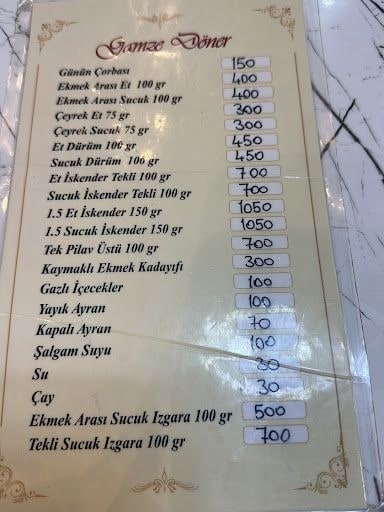 Gamze Döner
Günün Çorbası 150
Ekmek Arası Et 100 gr 400
Ekmek Arası Sucuk 100 gr 400
Çeyrek Et 75 gr 300
Çeyrek Sucuk 75 gr 300
Et Dürüm 100 gr 450
Sucuk Dürüm 100 gr 450
Et İskender Tekli 100 gr 700
Sucuk İskender Tekli 100 gr 700
1.5 Et İskender 150 gr 1050
1.5 Sucuk İskender 150 gr 1050
Tek Pilav Üstü 100 gr 700
Kaymaklı Ekmek Kadayıfı 300
Gazlı İçecekler 100
Yayık Ayran 100
Kapalı Ayran 70
Şalgam Suyu 100
Su 30
Çay 30
Ekmek Arası Sucuk Izgara 100 gr 500
Tekli Sucuk Izgara 100 gr 700